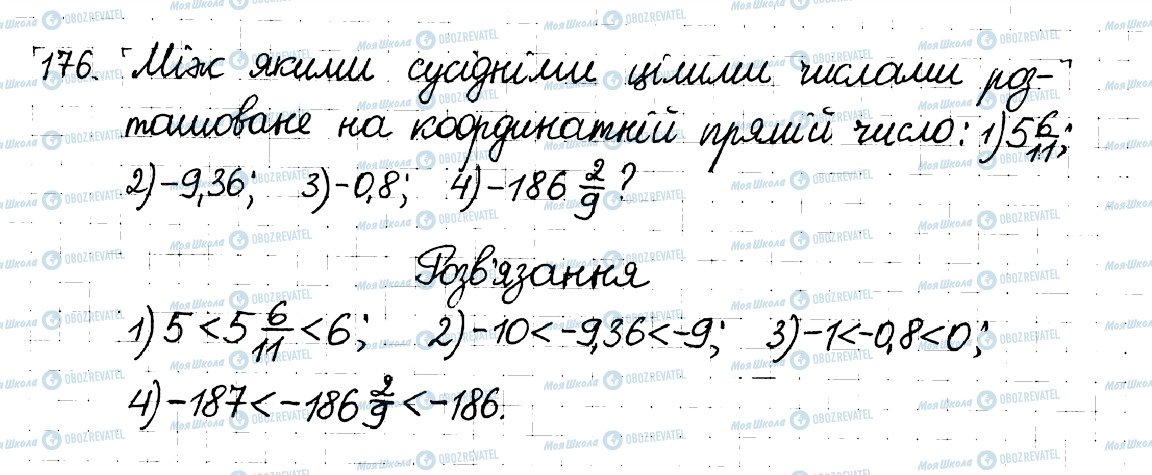 176. Між якими сусідніми цілими числами роз-
ташоване на координатній прямій число: 1) 5 6/11;
2) -9,36; 3) -0,8; 4) -186 2/9?
Розв'язання
1) 5 < 5 6/11 < 6; 2) -10 < -9,36 < -9; 3) -1 < -0,8 < 0;
4) -187 < -186 2/9 < -186.